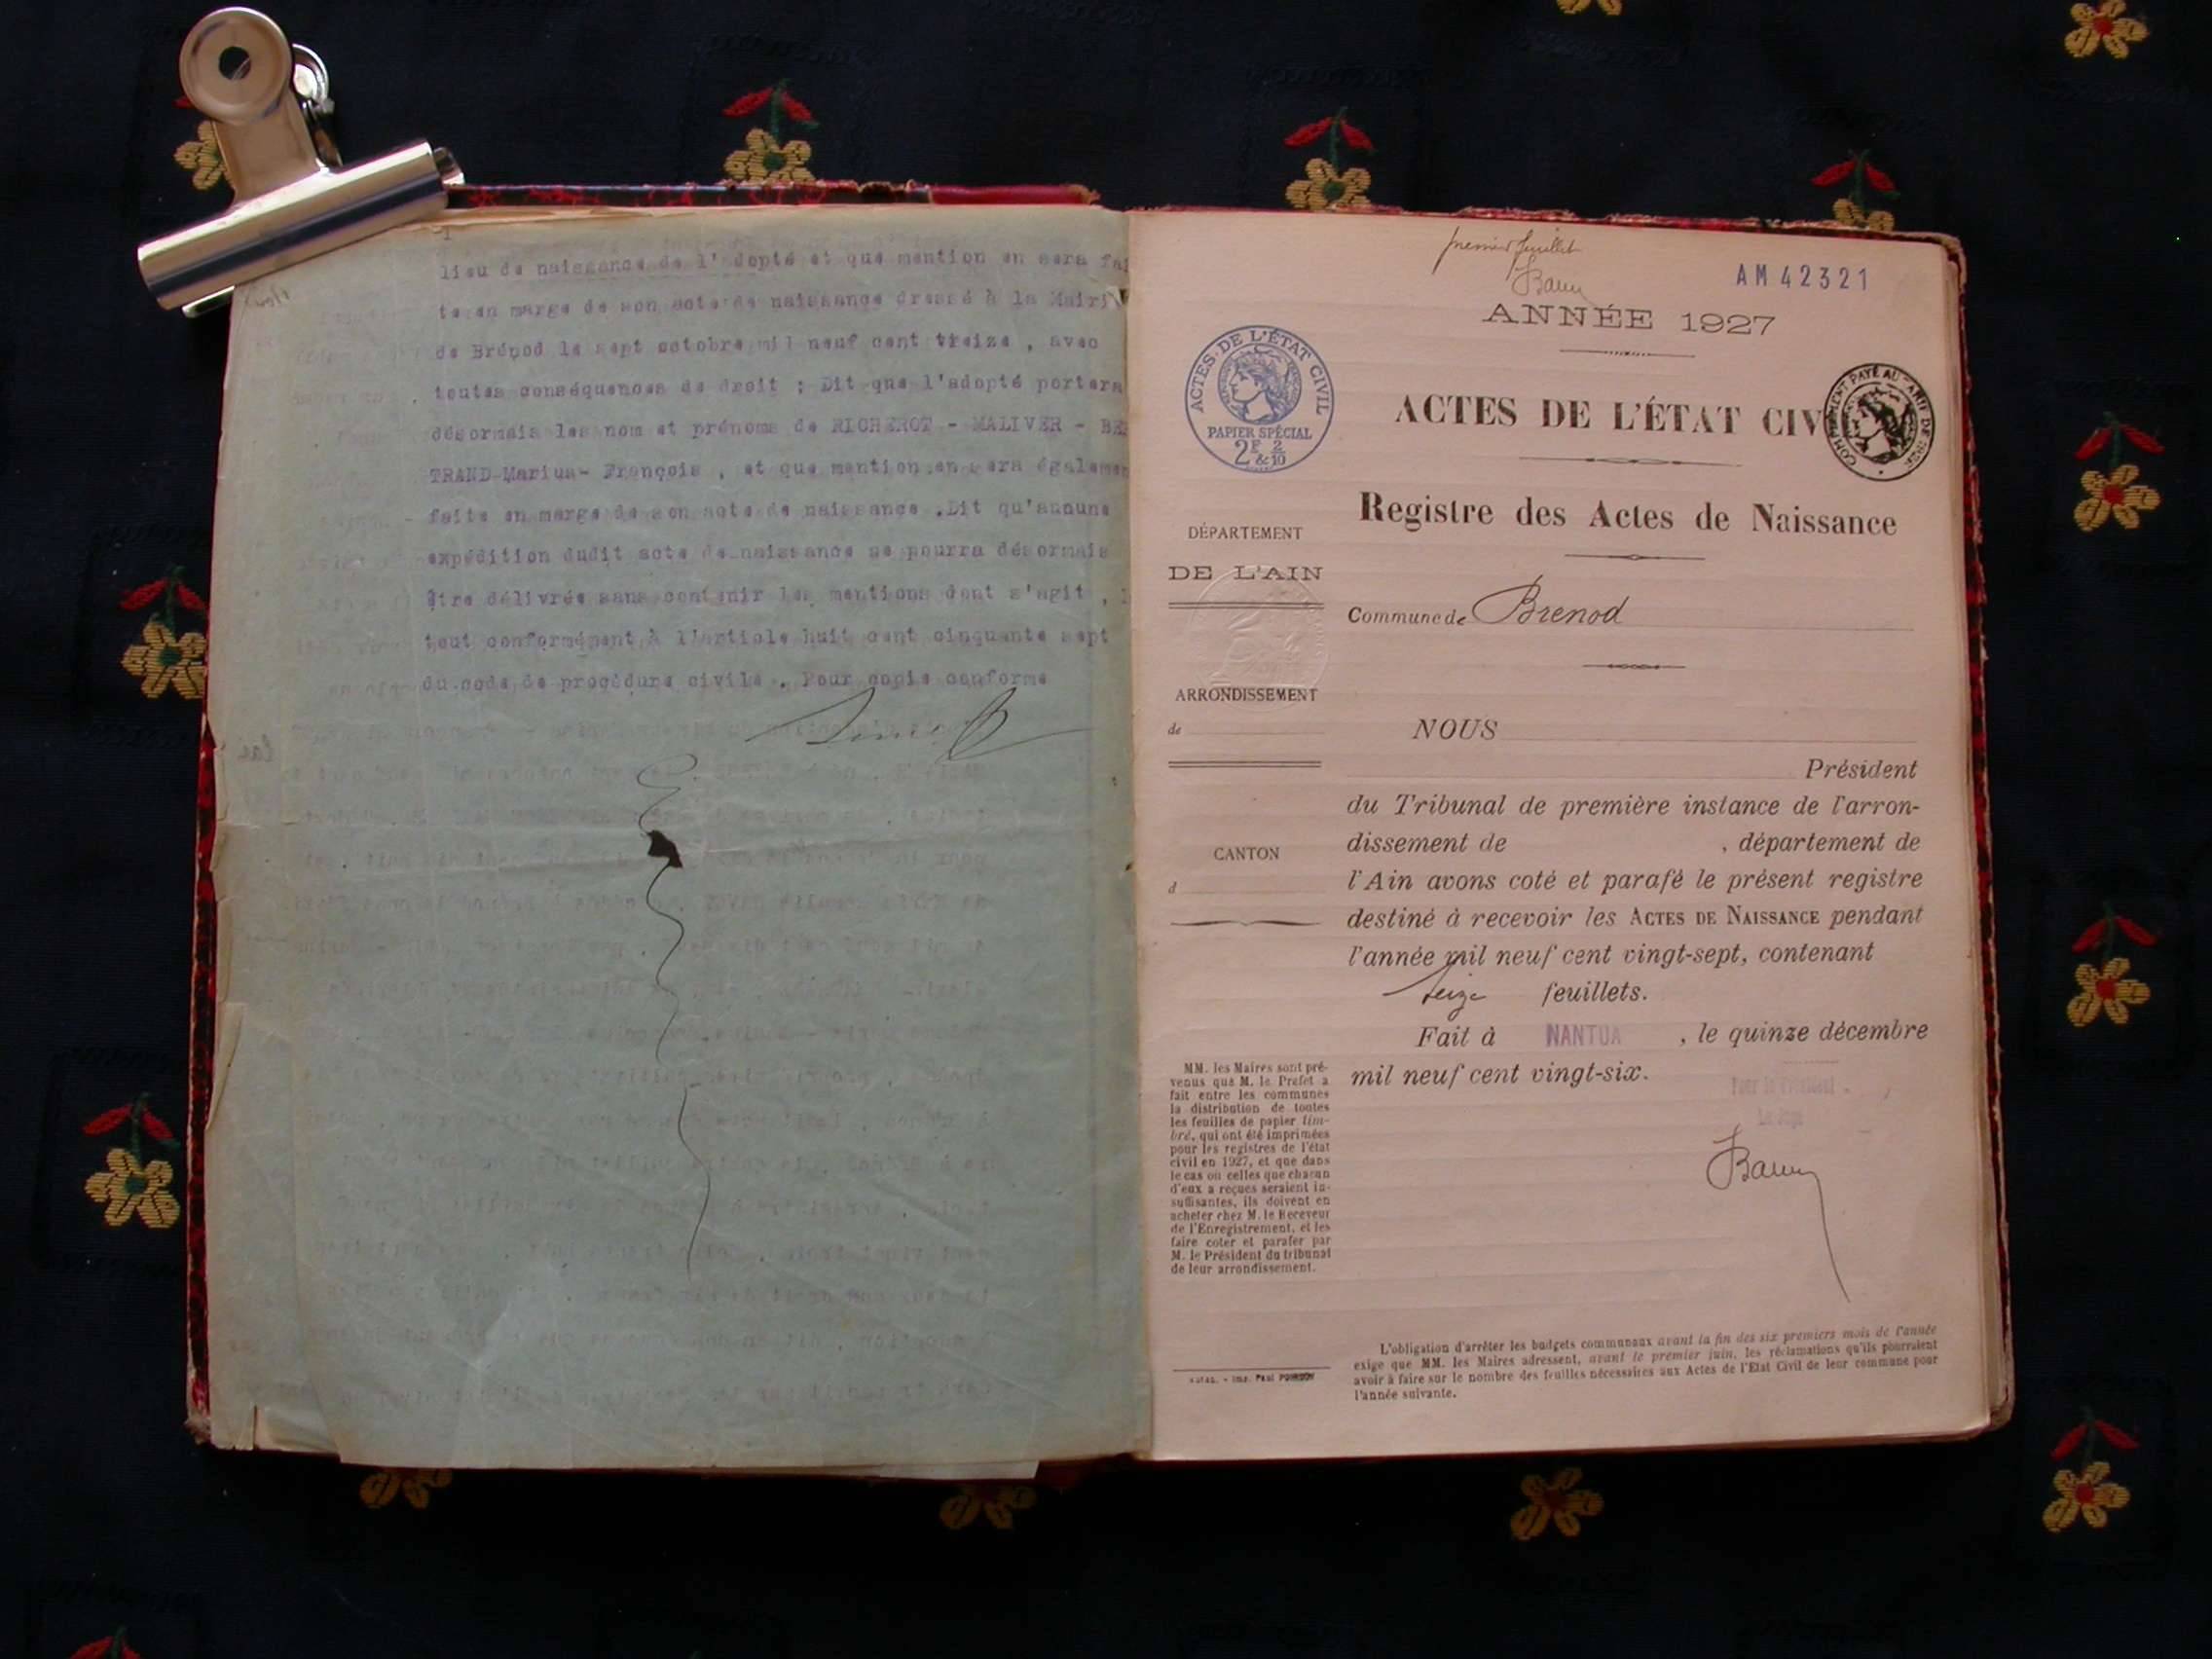 lieu de naissance de l' dopté et que mention en sera fai
te en marge de son acte de naissance dressé à la Mairi
de Brénod le sept octobre mil neuf cent treize , avec
toutes conséquences de droit ; Dit que l'adopté portera
désormais les nom et prénoms de RICHEROT - MALIVER - BE
TRAND-Marius- François , et que mention en sera égalemen
faite en marge de son acte de naissance .Dit qu'aunune
expédition dudit acte de naissance ne pourra désormais
être délivrée sans contenir les mentions dont s'agit ,
tout conformément à l'article huit cent cinquante sept
du code de procédure civile . Pour copie conforme
premier feuillet
AM 42321
ANNÉE 1927
ACTES DE L'ÉTAT CIVIL
PAPIER SPÉCIAL
2F & 2/10
ACTES DE L'ÉTAT CIV
PAYÉ AU TARIF DE
Registre des Actes de Naissance
DÉPARTEMENT
DE L'AIN
Commune de Brenod
ARRONDISSEMENT
de
NOUS
Président
du Tribunal de première instance de l'arron-
dissement de , département de
CANTON
d
l'Ain avons coté et parafé le présent registre
destiné à recevoir les ACTES DE NAISSANCE pendant
l'année mil neuf cent vingt-sept, contenant
seize feuillets.
Fait à NANTUA , le quinze décembre
mil neuf cent vingt-six.
Pour le Président
Le Juge
MM. les Maires sont pré-
venus que M. le Préfet a
fait entre les communes
la distribution de toutes
les feuilles de papier tim-
bré, qui ont été imprimées
pour les registres de l'état
civil en 1927, et que dans
le cas où celles que chacun
d'eux a reçues seraient in-
suffisantes, ils doivent en
acheter chez M. le Receveur
de l'Enregistrement, et les
faire coter et parafer par
M. le Président du tribunal
de leur arrondissement.
L'obligation d'arrêter les budgets communaux avant la fin des six premiers mois de l'année
exige que MM. les Maires adressent, avant le premier juin, les réclamations qu'ils pourraient
avoir à faire sur le nombre des feuilles nécessaires aux Actes de l'Etat Civil de leur commune pour
l'année suivante.
Imp. Paul